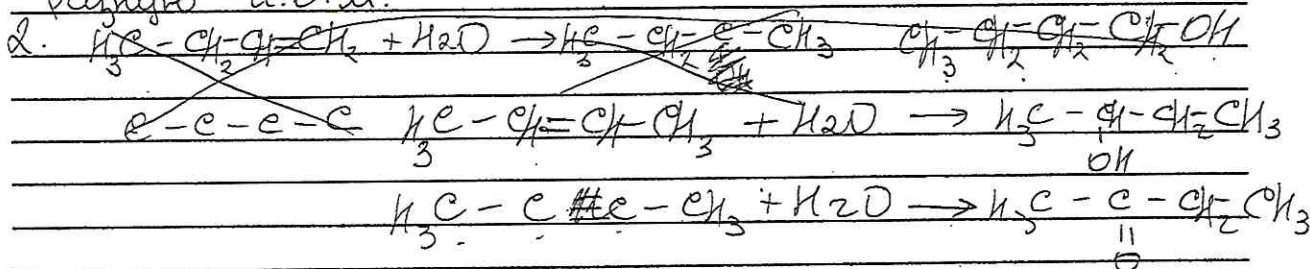 разную
2. H3C - CH2-CH=CH2 + H2O → H3C - CH2 - C - CH3 CH3 - CH2 - CH2 - CH2 OH
C - C - C - C H3C - CH=CH-CH3 + H2O → H3C - CH - CH2-CH3
OH
H3C - C ≡ C - CH3 + H2O → H3C - C - CH2 CH3
O